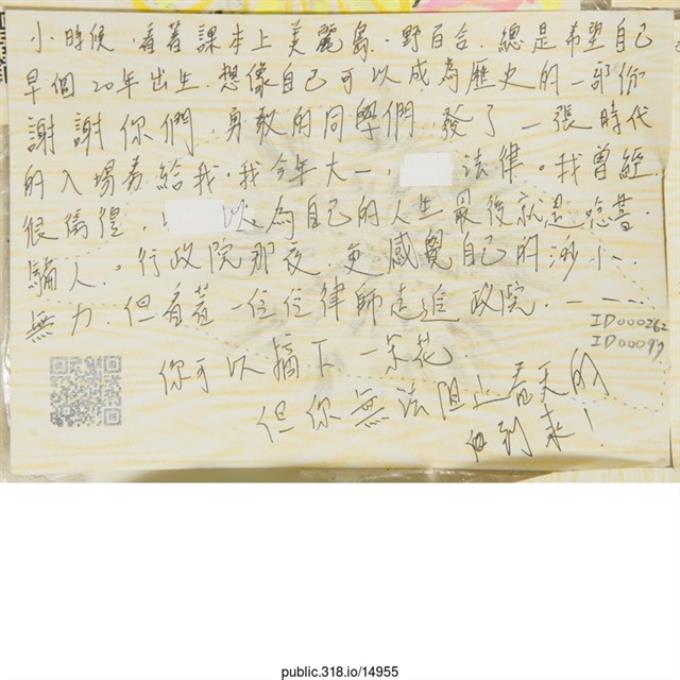 小時候,看著課本上美麗島、野百合,總是希望自己
早個20年出生,想像自己可以成為歷史的一部份
謝謝你們,勇敢的同學們,發了一張時代
的入場券給我。我今年大一, 法律。我曾經
很徬徨, 以為自己的人生最後就是唸書、
騙人。行政院那夜,更感覺自己的渺小、
無力,但看著一位位律師走進政院.———
ID000262
ID00099
你可以摘下一朵花,
但你無法阻止春天的
到來!
public.318.io/14955